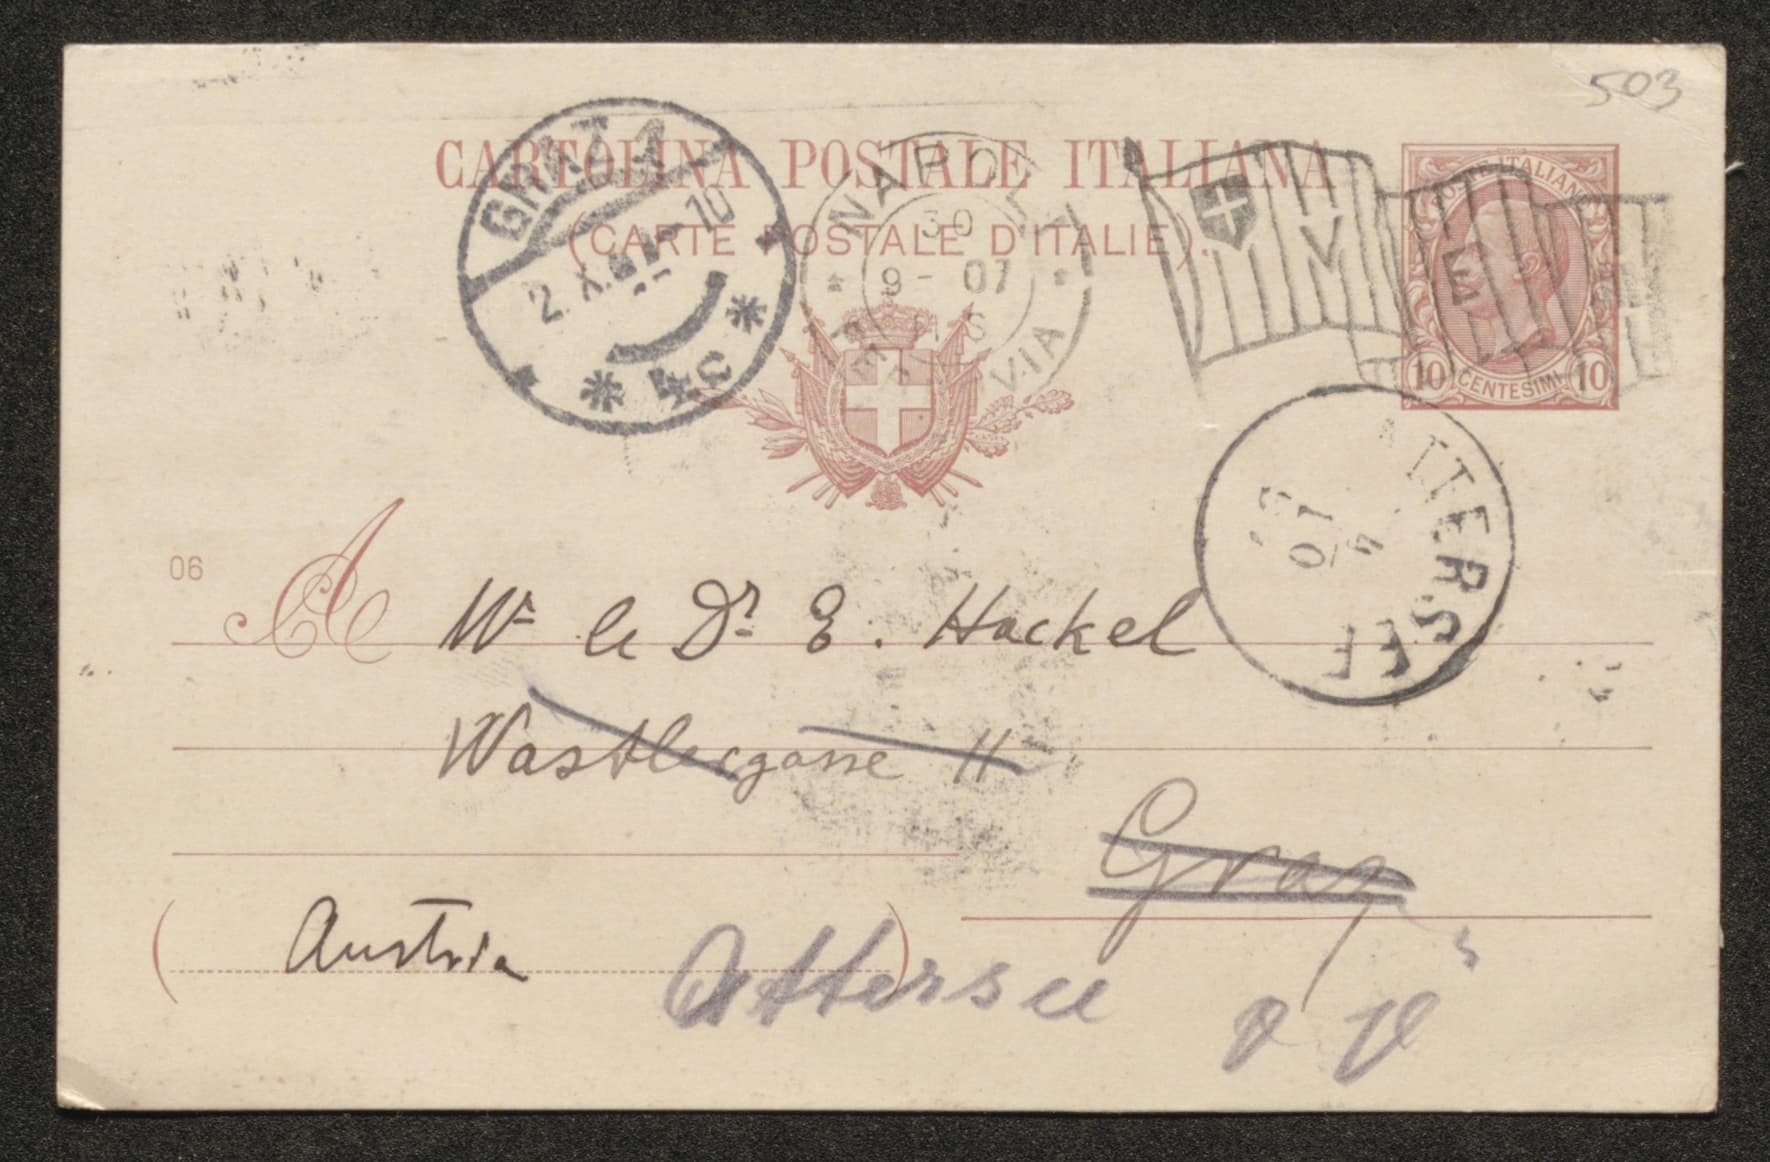 503
CARTOLINA POSTALE ITALIANA
(CARTE POSTALE D'ITALIE).
POSTE ITALIANE
10 CENTESIMI 10
GRAZ 1
2.X.07 10
* 4c *
NAPOLI
30
9- 07
FERROVIA
V E
ATTERSEE
4
10
06
A
Dr. E. Hackel
Wastlergasse 11
Graz
Austria
Attersee